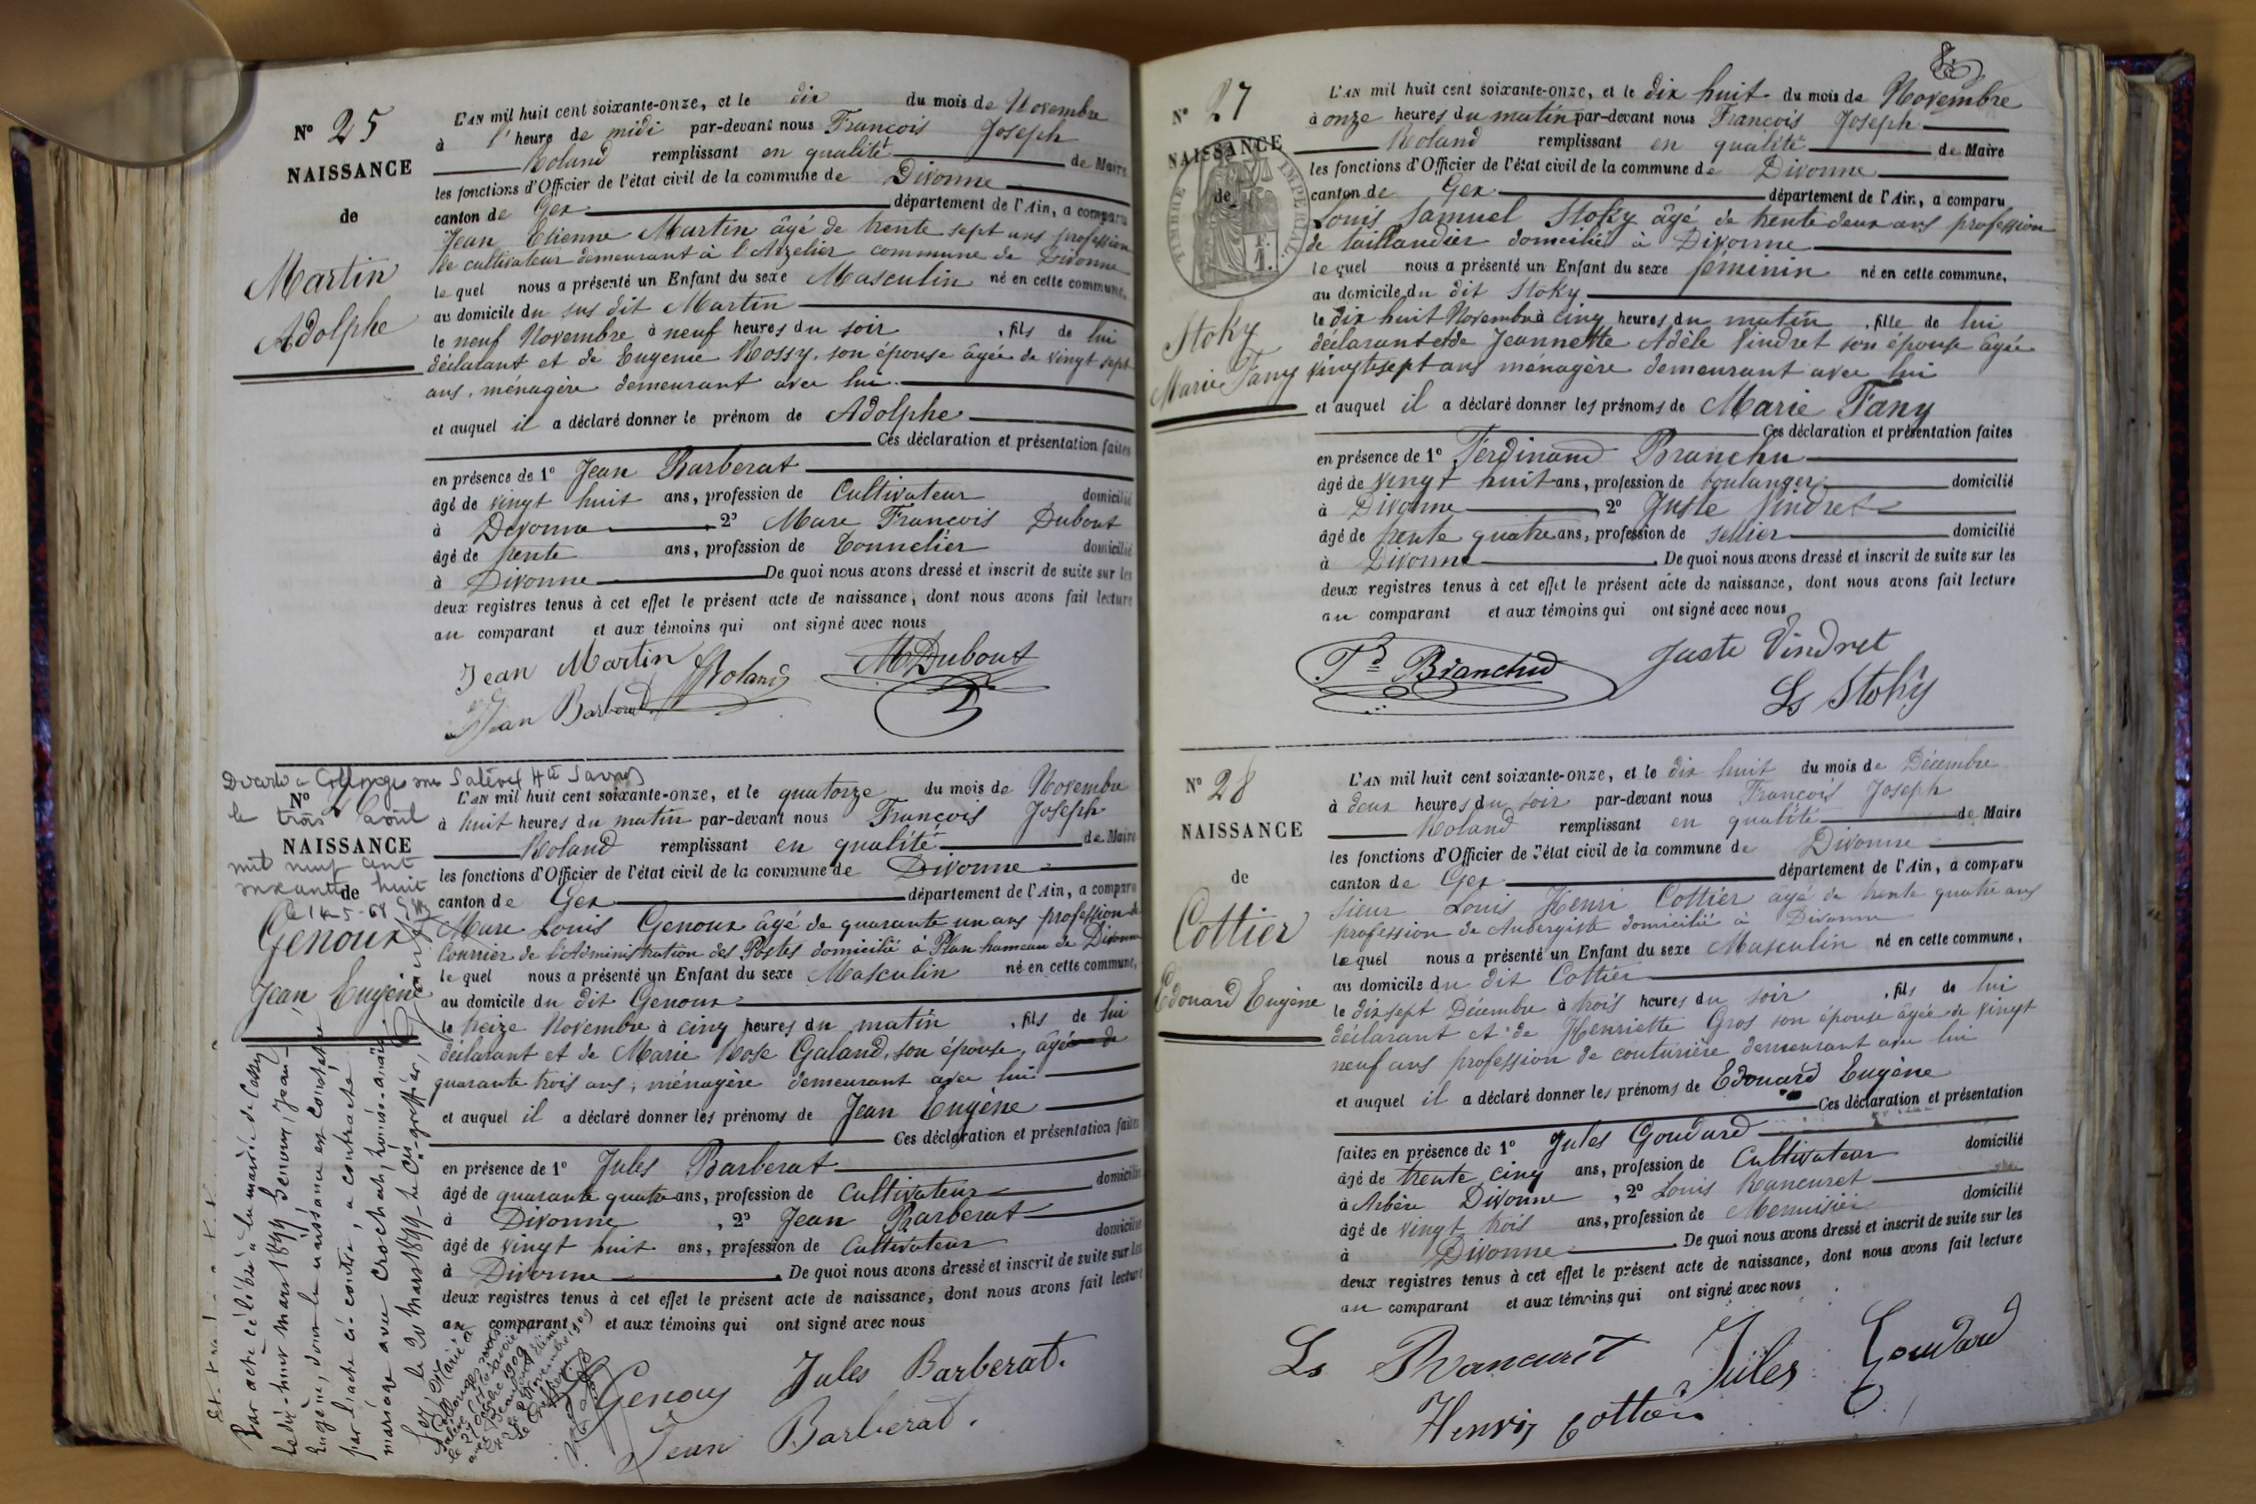 N° 25
NAISSANCE
de
Martin
Adolphe
L'AN mil huit cent soixante-onze, et le dix du mois de Novembre
à l' heure de midi par-devant nous François Joseph
Roland remplissant en qualité de Maire
les fonctions d'Officier de l'état civil de la commune de Divonne
canton de Gex département de l'Ain, a comparu
Jean Etienne Martin âgé de trente sept ans profession
de cultivateur demeurant à l'Arzelier commune de Divonne
lequel nous a présenté un Enfant du sexe Masculin né en cette commune,
au domicile du sus dit Martin
le neuf Novembre à neuf heures du soir , fils de lui
déclarant et de Eugenie Rossy, son épouse âgée de vingt sept
ans, ménagère demeurant avec lui
et auquel il a déclaré donner le prénom de Adolphe
Ces déclaration et présentation faites
en présence de 1° Jean Barberat
âgé de vingt huit ans, profession de Cultivateur domicilié
à Divonne 2° Marc François Dubout
âgé de trente ans, profession de Tonnelier domicilié
à Divonne De quoi nous avons dressé et inscrit de suite sur les
deux registres tenus à cet effet le présent acte de naissance, dont nous avons fait lecture
au comparant et aux témoins qui ont signé avec nous
Jean Martin JRoland MDubout
Jean Barberat
Divorcé à Collonges sous Salève Hte Savoie
le trois août
mil neuf cent
soixante huit
le 14-5-68
N°
NAISSANCE
de
Genoux
Jean Eugène
L'AN mil huit cent soixante-onze, et le quatorze du mois de Novembre
à huit heures du matin par-devant nous François Joseph
Roland remplissant en qualité de Maire
les fonctions d'Officier de l'état civil de la commune de Divonne
canton de Gex département de l'Ain, a comparu
Marc Louis Genoux âgé de quarante un ans profession de
Courrier de l'Administration des Postes domicilié à Plan hameau de Divonne
lequel nous a présenté un Enfant du sexe Masculin né en cette commune,
au domicile du dit Genoux
le treize Novembre à cinq heures du matin , fils de lui
déclarant et de Marie Rose Galand, son épouse, âgée de
quarante trois ans, ménagère demeurant avec lui
et auquel il a déclaré donner les prénoms de Jean Eugène
Ces déclaration et présentation faites
en présence de 1° Jules Barberat
âgé de quarante quatre ans, profession de Cultivateur domicilié
à Divonne , 2° Jean Barberat
âgé de vingt huit ans, profession de Cultivateur domicilié
à Divonne De quoi nous avons dressé et inscrit de suite sur les
deux registres tenus à cet effet le présent acte de naissance, dont nous avons fait lecture
au comparant et aux témoins qui ont signé avec nous
Genoux Jules Barberat.
Jean Barberat.
Par acte célébré à la mairie de Cessy
le dix-huit mars 1899 Genoux, Jean
Eugène, dont la naissance est constatée
par l'acte ci-contre, a contracté
mariage avec Crochat,
Gex, le 20 mars 1899 Le Cis-greffier,
Marié à
Collonges sous
Salève Hte Savoie
le 27 octobre 1909
N° 27
NAISSANCE
de
TIMBRE IMPERIAL
Stoky
Marie Fany
L'AN mil huit cent soixante-onze, et le dix huit du mois de Novembre
à onze heures du matin par-devant nous François Joseph
Roland remplissant en qualité de Maire
les fonctions d'Officier de l'état civil de la commune de Divonne
canton de Gex département de l'Ain, a comparu
Louis Samuel Stoky âgé de trente deux ans profession
de taillandier domicilié à Divonne
lequel nous a présenté un Enfant du sexe féminin né en cette commune,
au domicile du dit Stoky
le dix huit Novembre à cinq heures du matin , fille de lui
déclarant et de Jeannette Adèle Vindret son épouse âgée
vingt sept ans ménagère demeurant avec lui
et auquel il a déclaré donner les prénoms de Marie Fany
Ces déclaration et présentation faites
en présence de 1° Ferdinand Branchu
âgé de vingt huit ans, profession de boulanger domicilié
à Divonne , 2° Juste Vindret
âgé de trente quatre ans, profession de sellier domicilié
à Divonne . De quoi nous avons dressé et inscrit de suite sur les
deux registres tenus à cet effet le présent acte de naissance, dont nous avons fait lecture
au comparant et aux témoins qui ont signé avec nous
Fd Branchud Juste Vindret
Ls Stoky
N° 28
NAISSANCE
de
Cottier
Edouard Eugène
L'AN mil huit cent soixante-onze, et le dix huit du mois de Décembre
à deux heures du soir par-devant nous François Joseph
Roland remplissant en qualité de Maire
les fonctions d'Officier de l'état civil de la commune de Divonne
canton de Gex département de l'Ain, a comparu
sieur Louis Henri Cottier âgé de trente quatre ans
profession de Aubergiste domicilié à Divonne
lequel nous a présenté un Enfant du sexe Masculin né en cette commune,
au domicile du dit Cottier
le dix sept Décembre à trois heures du soir , fils de lui
déclarant et de Henriette Gros son épouse âgée de vingt
neuf ans profession de couturière demeurant avec lui
et auquel il a déclaré donner les prénoms de Edouard Eugène
Ces déclaration et présentation
faites en présence de 1° Jules Goudard
âgé de trente cinq ans, profession de Cultivateur domicilié
à Arbère Divonne , 2° Louis Rancuret
âgé de vingt trois ans, profession de Menuisier domicilié
à Divonne . De quoi nous avons dressé et inscrit de suite sur les
deux registres tenus à cet effet le présent acte de naissance, dont nous avons fait lecture
au comparant et aux témoins qui ont signé avec nous
Ls Rancurêt Jules Goudard
Henri Cottier